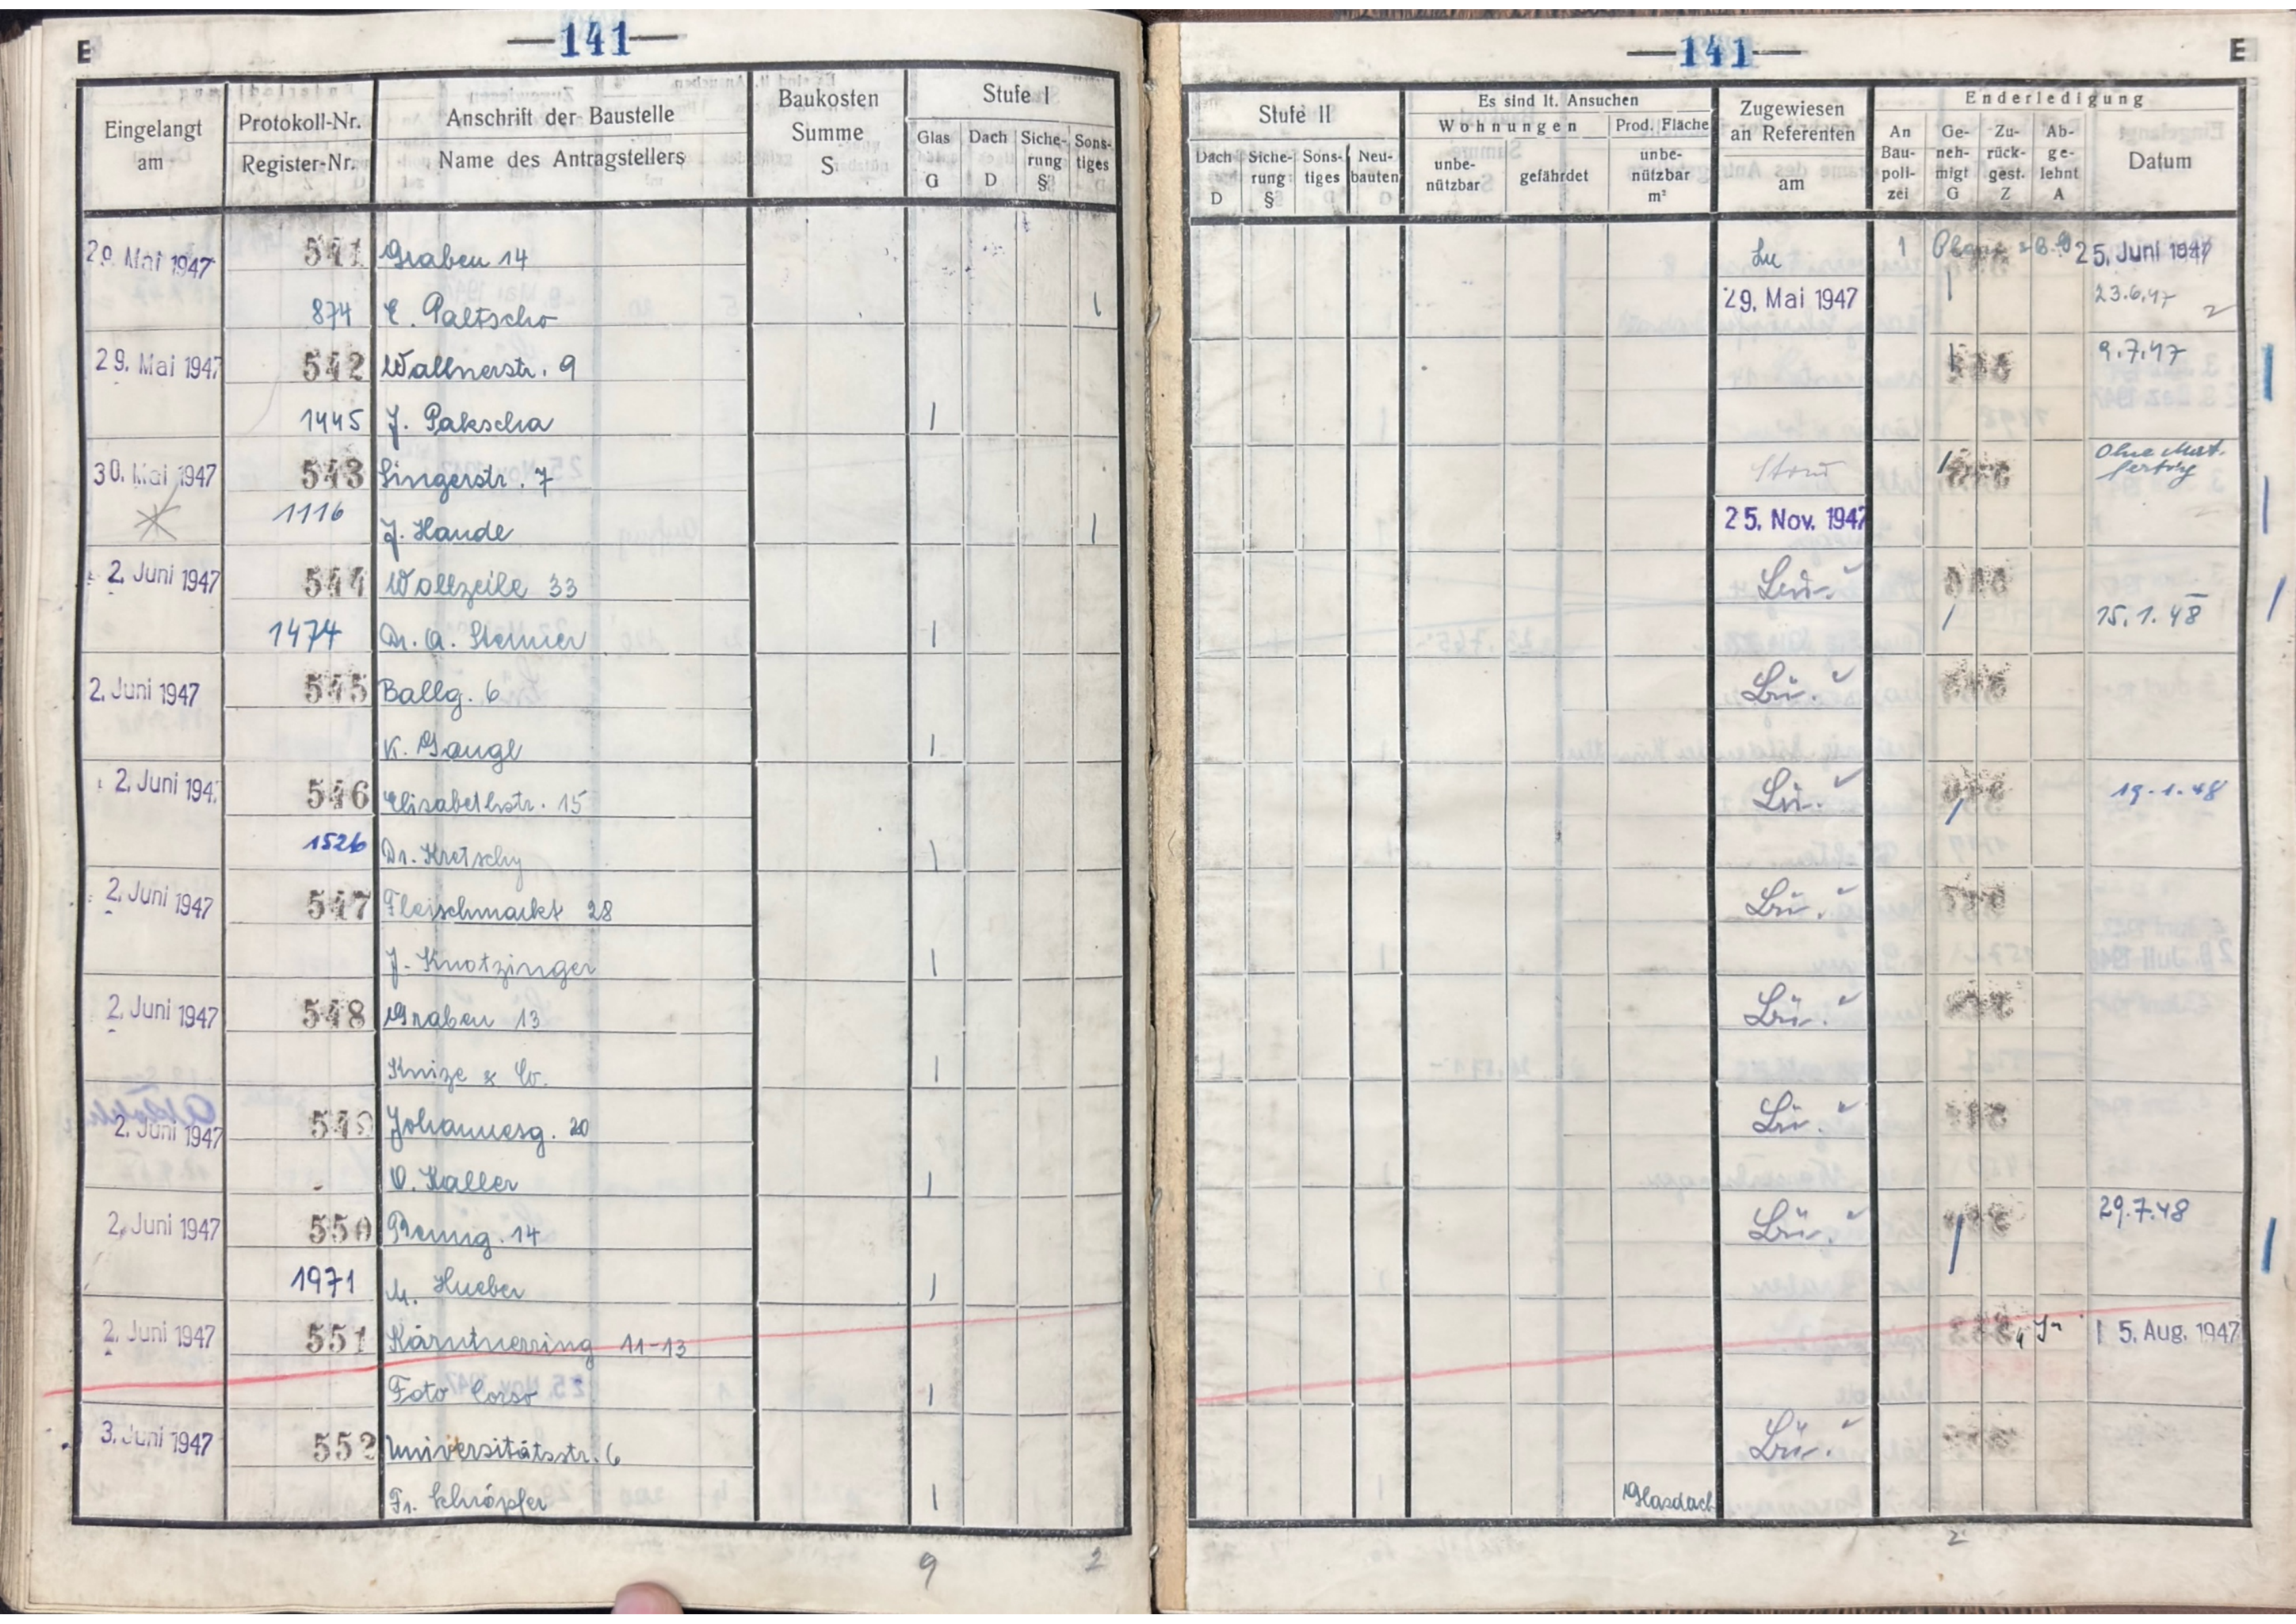 E —141—
Eingelangt am
Protokoll-Nr.
Register-Nr.
Anschrift der Baustelle
Name des Antragstellers
Baukosten Summe S
Stufe I
Glas G
Dach D
Siche-rung §
Sons-tiges
29. Mai 1947 541 Graben 14
874 E. Paltscho 1
29. Mai 1947 542 Wallnerstr. 9
1445 J. Pakscha 1
30. Mai 1947 543 Singerstr. 7
1116 J. Hande 1
2. Juni 1947 544 Wollzeile 33
1474 Dr. A. Steiner 1
2. Juni 1947 545 Ballg. 6
K. Gangl 1
2. Juni 194 546 Elisabethstr. 15
1526 Dr. Kretschy 1
2. Juni 1947 547 Fleischmarkt 28
J. Knotzinger 1
2. Juni 1947 548 Graben 13
Knize & Co. 1
2. Juni 1947 549 Johannesg. 20
O. Kaller 1
2. Juni 1947 550 14
1971 M. Hueber 1
2. Juni 1947 551 Kärntnerring 11-13
Foto Corso 1
3. Juni 1947 552 Universitätsstr. 6
Fr. Schröpfer 1
9 2
—141— E
Stufe II
Dach D
Siche-rung §
Sons-tiges
Neu-bauten
Es sind lt. Ansuchen
Wohnungen
unbe-nützbar
gefährdet
Prod. Fläche
unbe-nützbar m²
Zugewiesen an Referenten am
Enderledigung
An Bau-poli-zei
Ge-neh-migt G
Zu-rück-gest. Z
Ab-ge-lehnt A
Datum
Lu 1 25. Juni 1947
29. Mai 1947 1 23.6.47 2
1 9.7.47
1 Ohne Mat. fertig
25. Nov. 1947
Lü.
1 15.1.48
Lü.
Lü. 1 19.1.48
Lü.
Lü.
Lü.
Lü. 1 29.7.48
15. Aug. 1947
Lü.
Glasdach
2